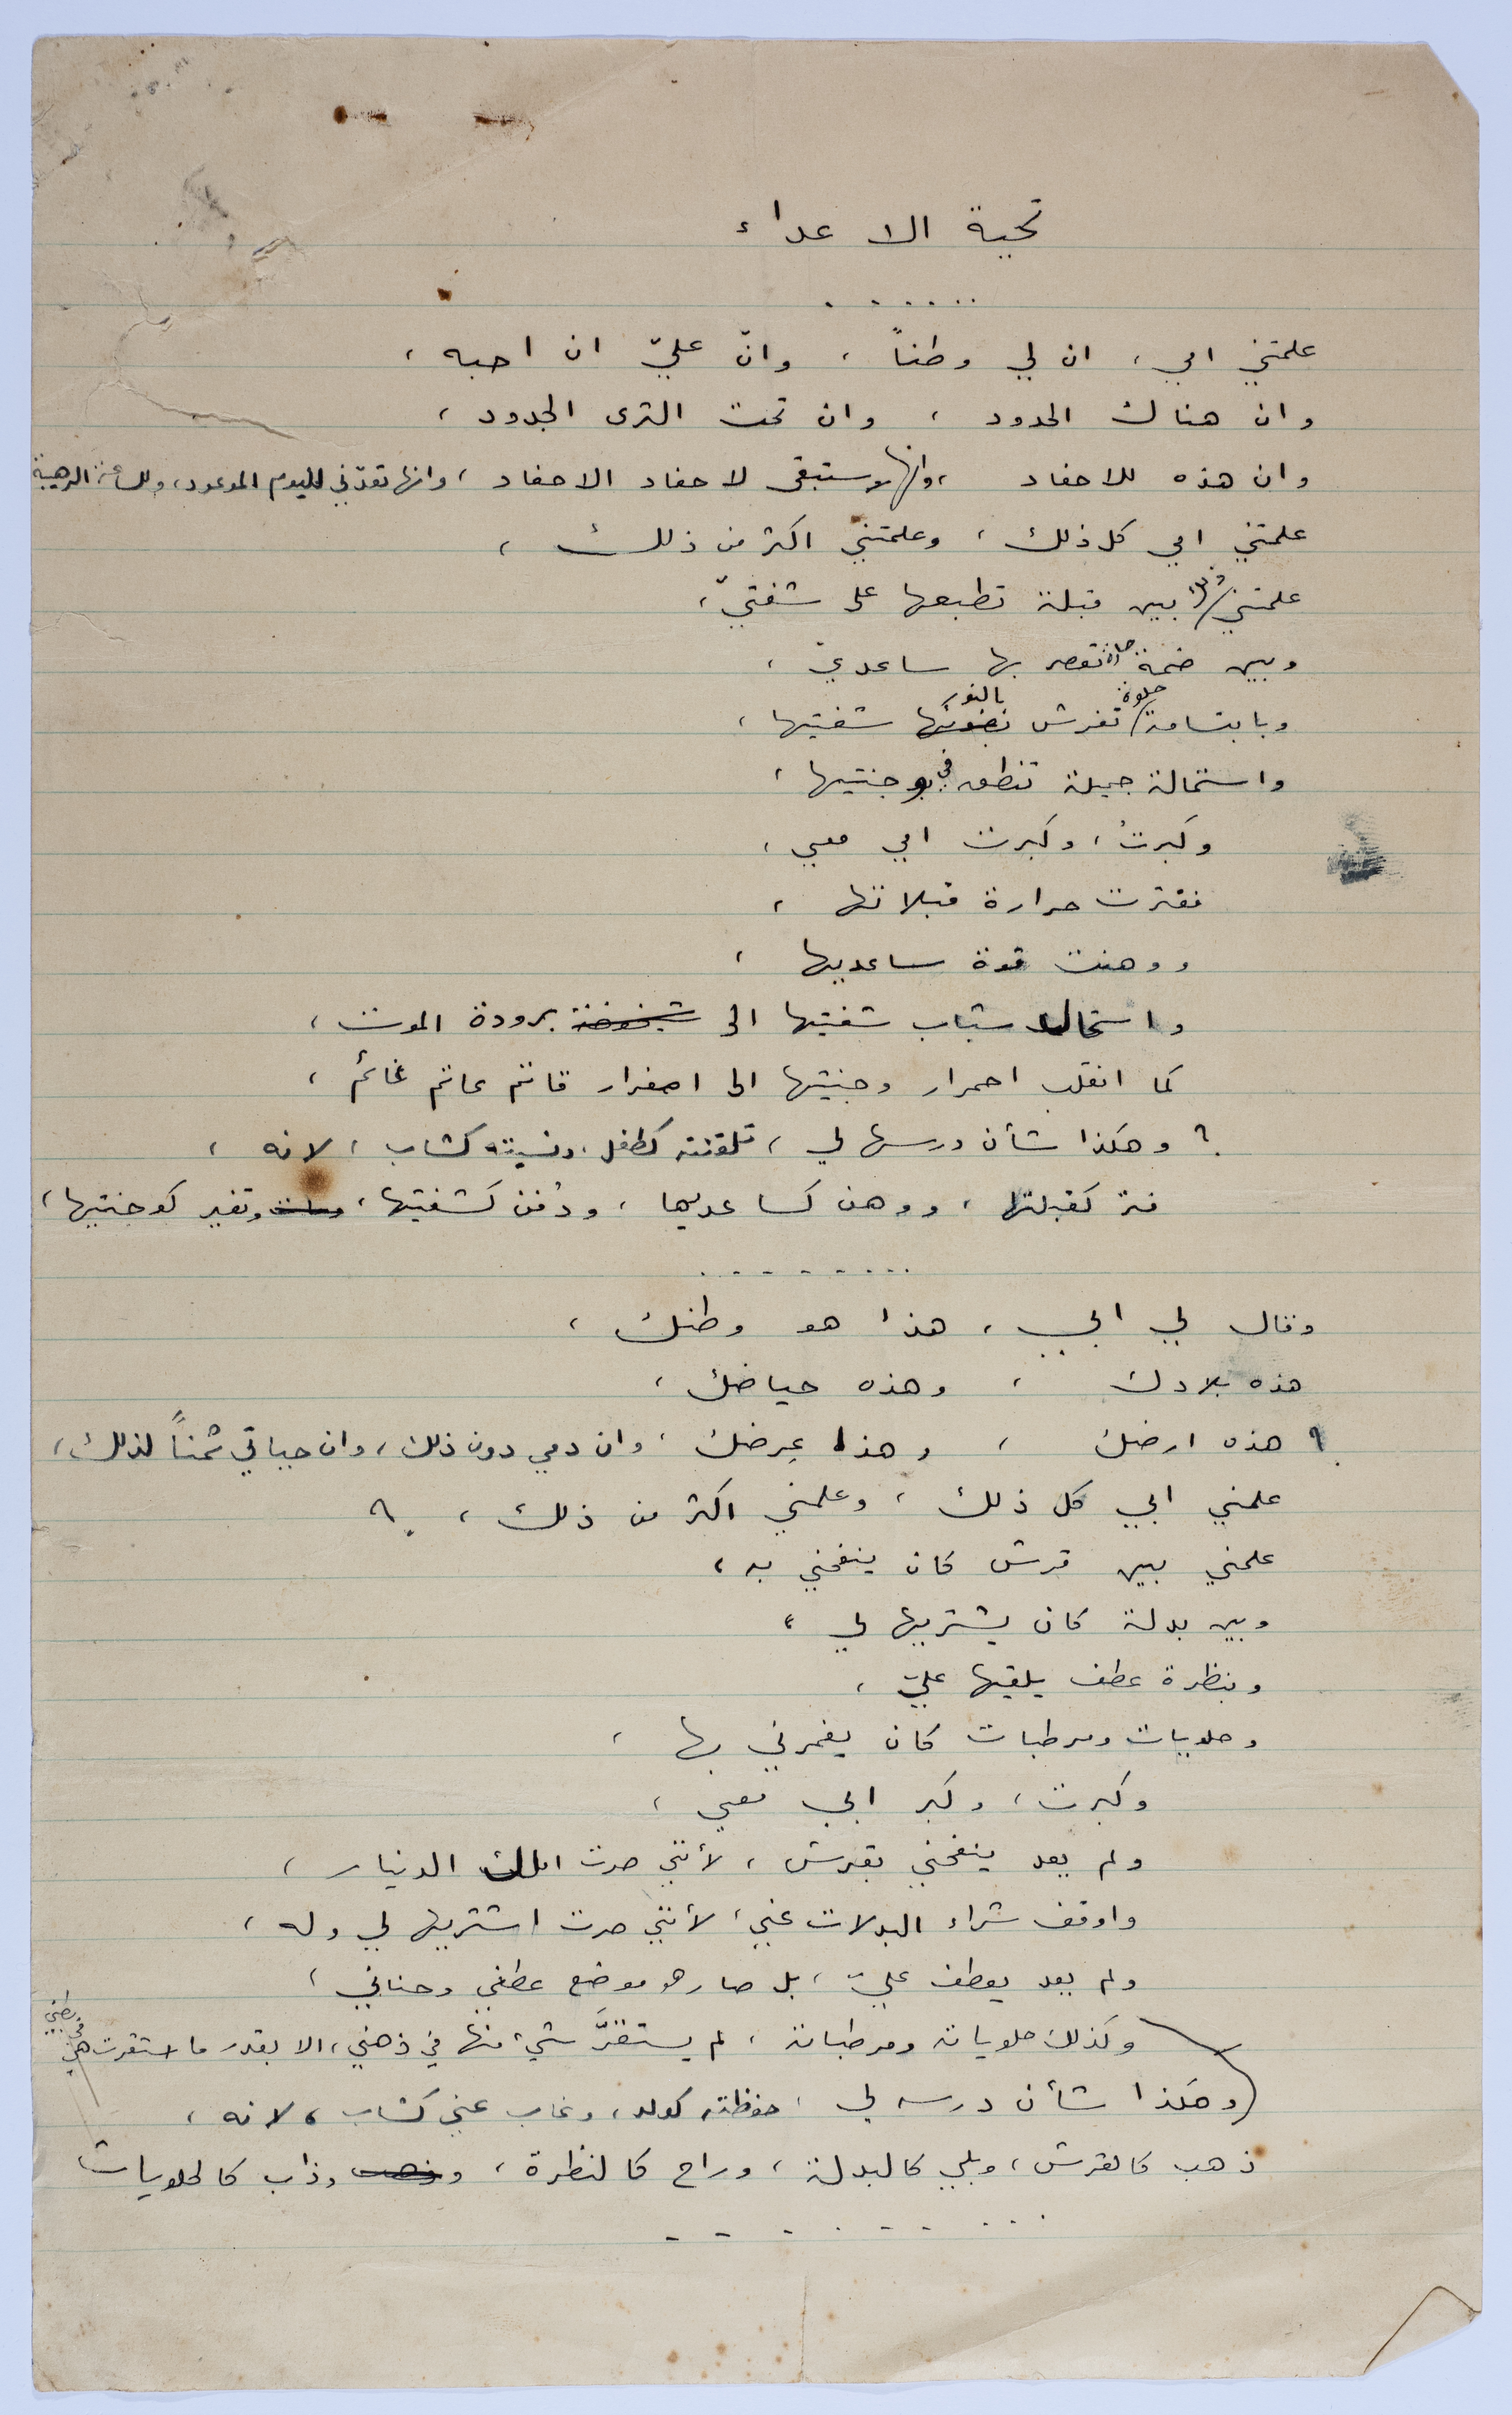 تحية الاعداء
......
علمتني امي، ان لي وطناً، وانّ عليّ ان احبه،
وان هناك الحدود، وان تحت الثرى الجدود،
وان هذه للاحفاد، وانها ستبقى لاحفاد الاحفاد، وانها تعدّني لليوم الموعود، وللساعة الرهيبة
علمتني امي كل ذلك، وعلمتني اكثر من ذلك،
علمتني بين قبلة تطبعها على شفتيّ،
وبين ضمة تعصر بها ساعديّ،
وبابتسامة حلوة تفرش بالنور شفتيها،
واستمالة جميلة تنطق في وجنتيها،
وكبرتُ، وكبرت امي معي،
ففترت حرارة قبلاتها،
ووهنت قوة ساعديها،
واستحال شباب شفتيها الى شيخوخة برودة الموت،
كما انقلب احمرار وجنيتها الى اصفرار قاتم عاتم غائم،
؟ وهكذا شأن درسها لي، تلقنته كطفل، ونسيته كشاب، لانه،
فتر كقبلتها، ووهن كساعديها، ودُفن كشفتيها، وتغير كوجنتيها،
.........
وقال لي ابي، هذا هو وطنك،
هذه بلادك، وهذه حياضك،
؟ هذه ارضك، وهذا عِرضك، وان دمي دون ذلك، وان حياتي ثمناً لذلك،
علمني ابي كل ذلك، وعلمني اكثر من ذلك، ؟
علمني بين قرش كان ينفحني به،
وبين بدلة كان يشتريها لي،
وبنظرة عطف يلقيها عليّ،
وحلويات ومرطبات كان يغمرني بها،
وكبرت، وكبر ابي معي،
ولم يعد ينفحني بقرش، لأنني صرت املك الدنيار،
واوقف شراء البدلات عني، لأنني صرت اشتريها لي وله،
ولم يعد يعطف عليّ، بل صار هو موضع عطفي وحناني،
وكذلك حلوياته ومرطباته، لم يستقرَّ شيء منها في ذهني، الا بقدر ما استقرت هي في بطني
(وهكذا شأن درسه لي، حفظته كولد، وغاب عني كشاب، لانه،
ذهب كالقرش، وبلي كالبدلة، وراح كالنظرة، وذهب وذاب كالحلويات
.........